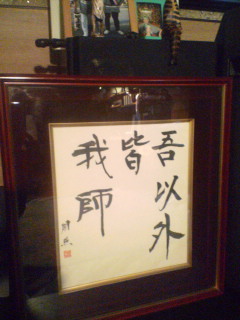 吾以外
皆
我師